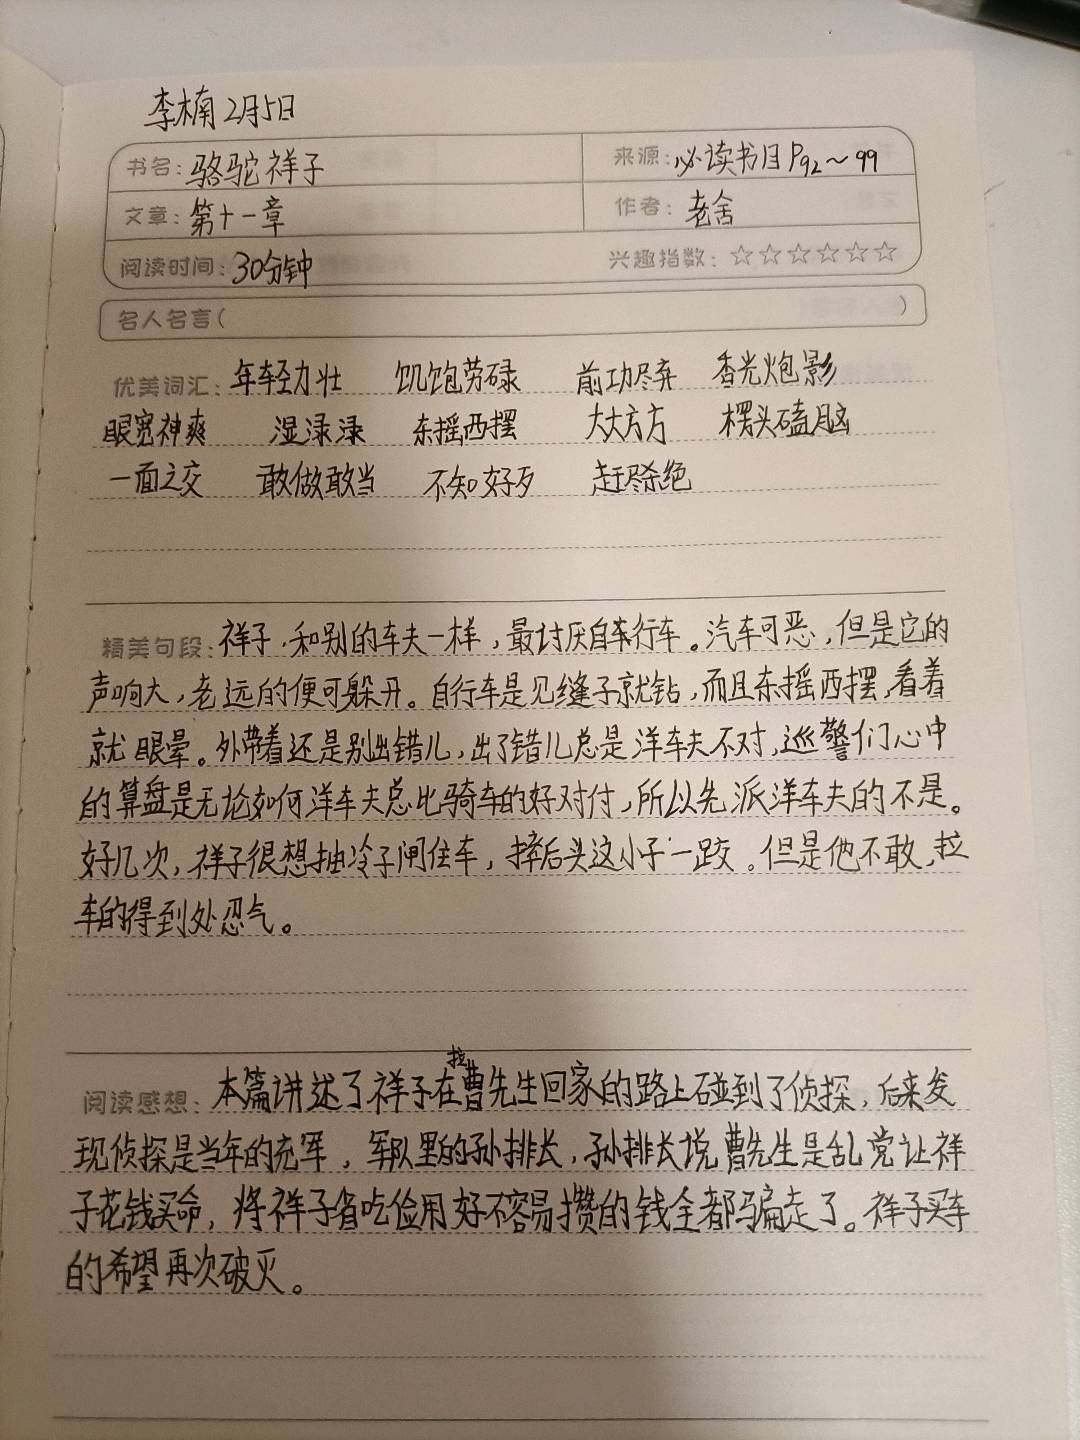 李楠 2月5日
书名：骆驼祥子 来源：必读书目P92～99
文章：第十一章 作者：老舍
阅读时间：30分钟 兴趣指数：☆☆☆☆☆☆
名人名言（ ）
优美词汇：年轻力壮 饥饱劳碌 前功尽弃 香光炮影
眼宽神爽 湿渌渌 东摇西摆 大大方方 楞头磕脑
一面之交 敢做敢当 不知好歹 赶尽杀绝
精美句段：祥子，和别的车夫一样，最讨厌自行车。汽车可恶，但是它的
声响大，老远的便可躲开。自行车是见缝子就钻，而且东摇西摆，看着
就眼晕。外带着还是别出错儿，出了错儿总是洋车夫不对，巡警们心中
的算盘是无论如何洋车夫总比骑车的好对付，所以先派洋车夫的不是。
好几次，祥子很想抽冷子闸住车，摔后头这小子一跤。但是他不敢，拉
车的得到处忍气。
阅读感想：本篇讲述了祥子在拉曹先生回家的路上碰到了侦探，后来发
现侦探是当年的充军，军队里的孙排长，孙排长说曹先生是乱党让祥
子花钱买命，将祥子省吃俭用好不容易攒的钱全都骗走了。祥子买车
的希望再次破灭。